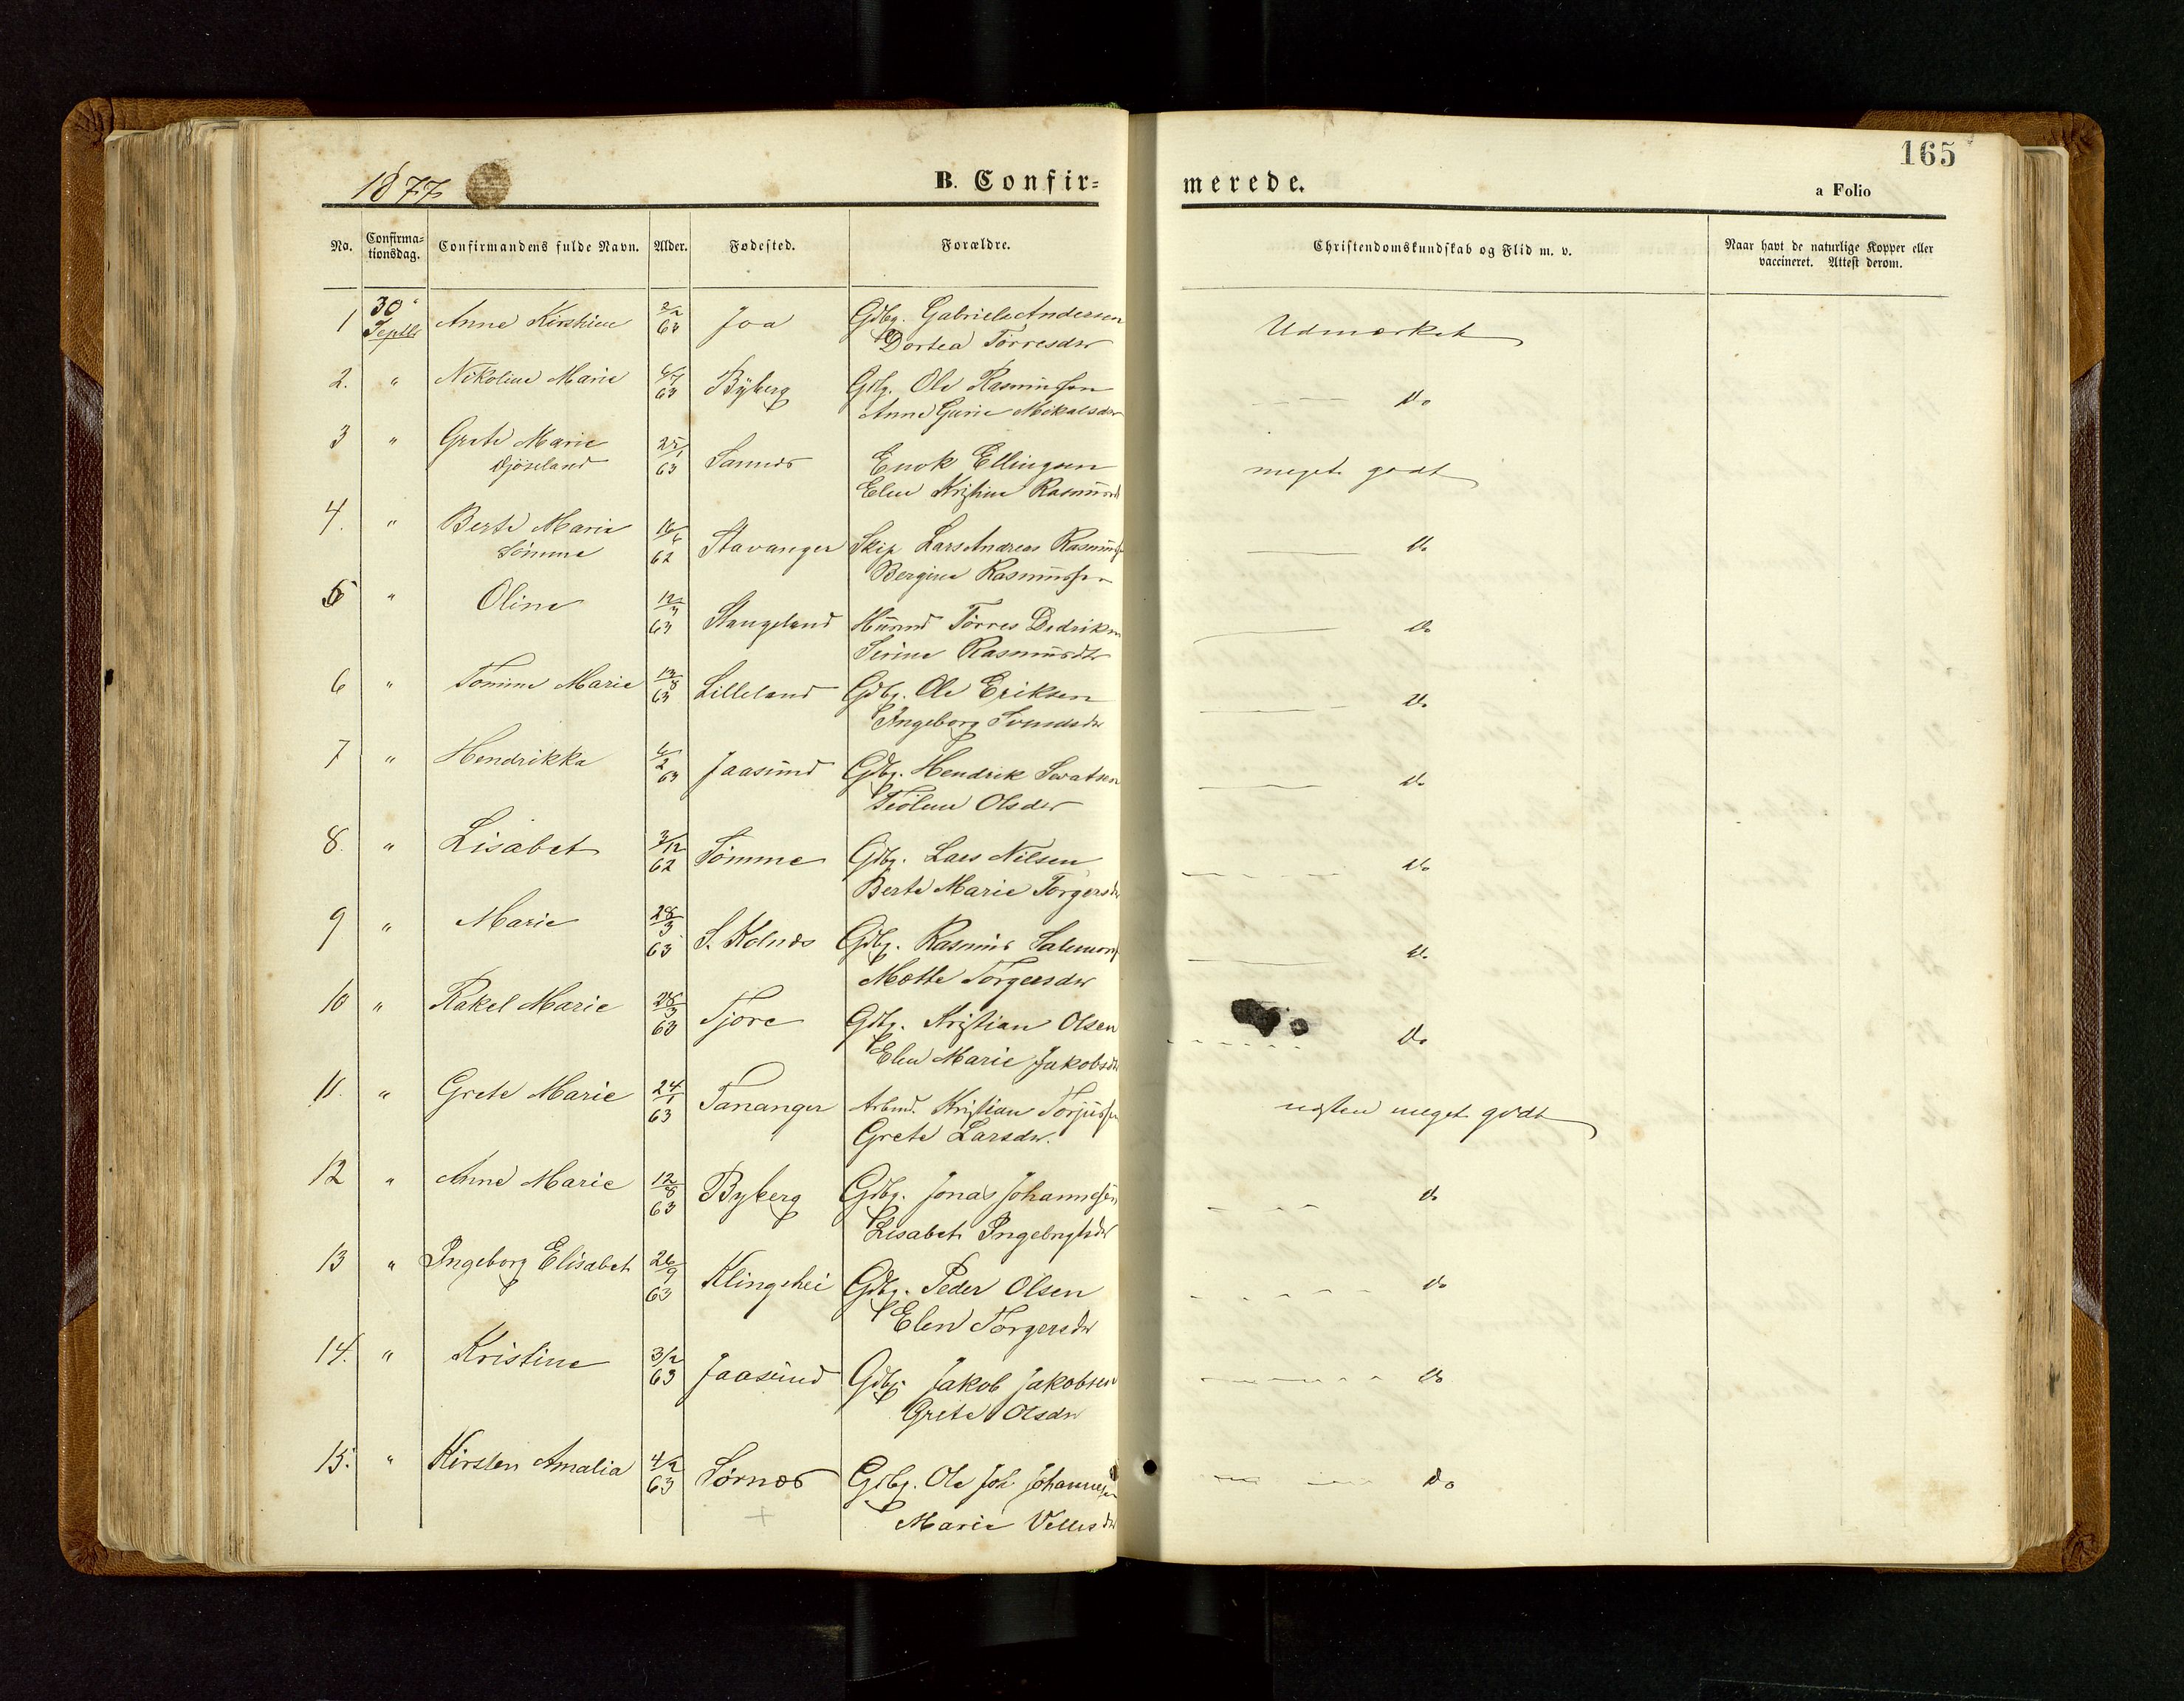 165
1877
B. Confir=
merede.
a Folio
No. Confirma=tionsdag. Confirmandens fulde Navn. Alder. Fødested. Forældre.
Christendomskundskab og Flid m. v. Naar havt de naturlige Kopper eller vaccineret. Attest derom.
1 30 Septbr Anne Kirstine 2/2 63 Joa Gdbg. Gabriel Andersen Udmærket
Dortea Törresdtr
2. " Nikoline Marie 63 Byberg Gdbg. Ole Rasmussen Do
Anne Gurie Mikalsdtr
3 " Grete Marie 63 Sannes Enok Ellingsen meget godt
Elen Kristine Rasmusd
4. " Berte Marie 16/6 62 Stavanger Skip Lars Andreas Rasmuss Do
Sömme
Bergine Rasmussen
5 " Oline 12/3 63 Stangeland Husmd Törres Dedriksen Do
Serine Rasmusdtr
6 " Tomine Marie 13/8 63 Lilleland Gdbg. Ole Eriksen Do
Ingeborg Svendsdtr
7 " Hendrikka 6/2 63 Jaasund Gdbg. Hendrik Do
Olsdtr
8. " Lisabet 3/12 62 Sömme Gdbg. Lars Nilsen Do
Berte Marie Torgersdtr
9 " Marie 28/3 63 S. Kolnes Gdbg. Rasmus Salemons Do
Mætte Torgersdtr
10 " Rakel Marie 28/3 63 Tjore Gdbg. Kristian Olsen Do
Elen Marie Jakobsdtr
11. " Grete Marie 24/1 63 Tananger Arbmd. Kristian Torjussen næsten meget godt
Grete Larsdtr.
12 " Anne Marie 12/8 63 Byberg Gdbg. Jonas Johannessen Do
Lisabet Ingebrigtsdtr
13 " Ingeborg Elisabet 26/9 63 Klingshei Gdbg. Peder Olsen Do
Elen Torgersdtr
14. " Kristine 3/2 63 Jaasund Gdbg. Jakob Jakobsen Do
Grete Olsdtr
15. " Kirsten Amalia 4/2 63 Sørnæs Gdbg. Ole Joh. Johannessen Do
Marie